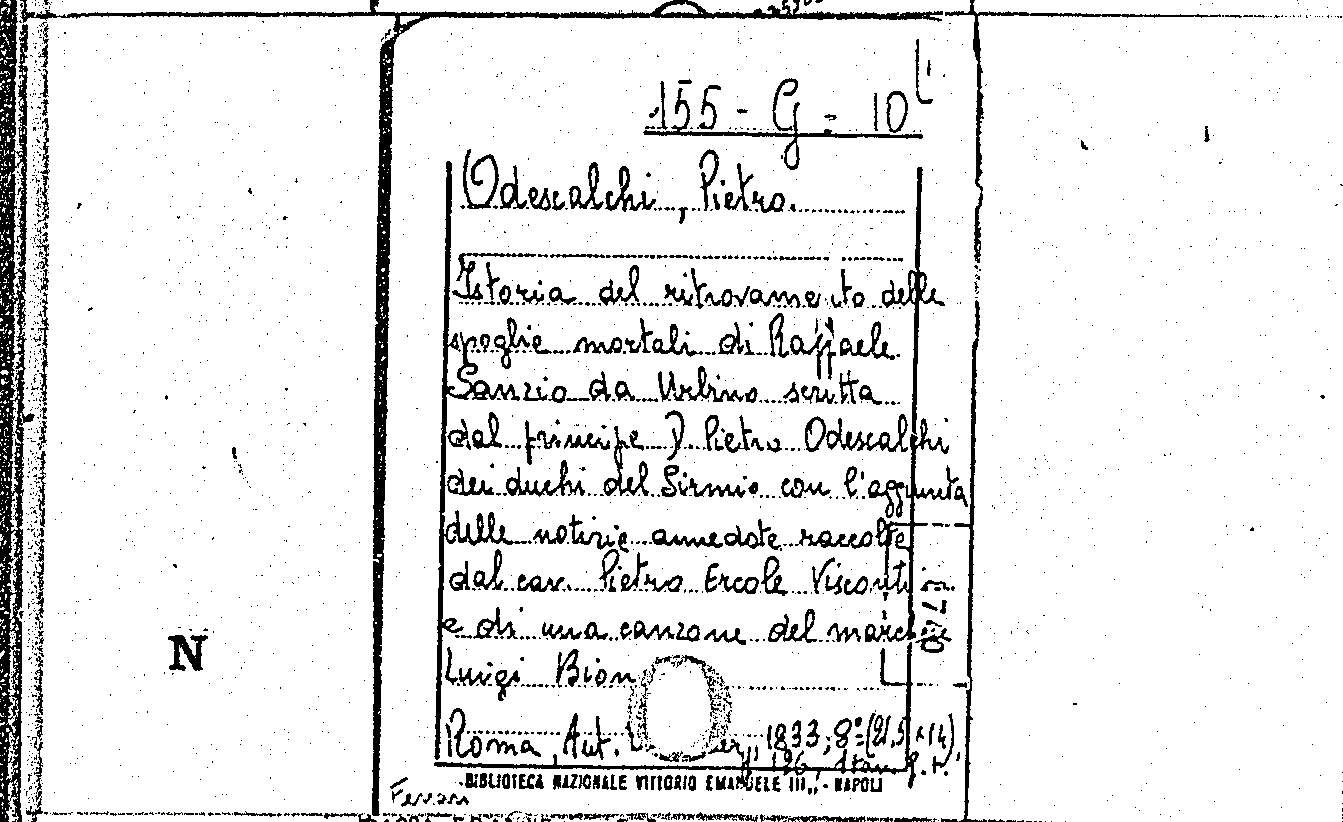 155 - G - 10
Odescalchi, Pietro.
Istoria del ritrovamento delle
spoglie mortali di Raffaele
Sanzio da Urbino scritta
dal principe D. Pietro Odescalchi
dei duchi del Sirmio con l'aggiunta
delle notizie annedote raccolte
dal cav. Pietro Ercole Visconti
e di una canzone del marchese
Luigi Bion
Roma, Aut. 1833, 8º (21,5 x 14),
p. 196,
BIBLIOTECA NAZIONALE VITTORIO EMANUELE III,, - NAPOLI
Ferrari
N